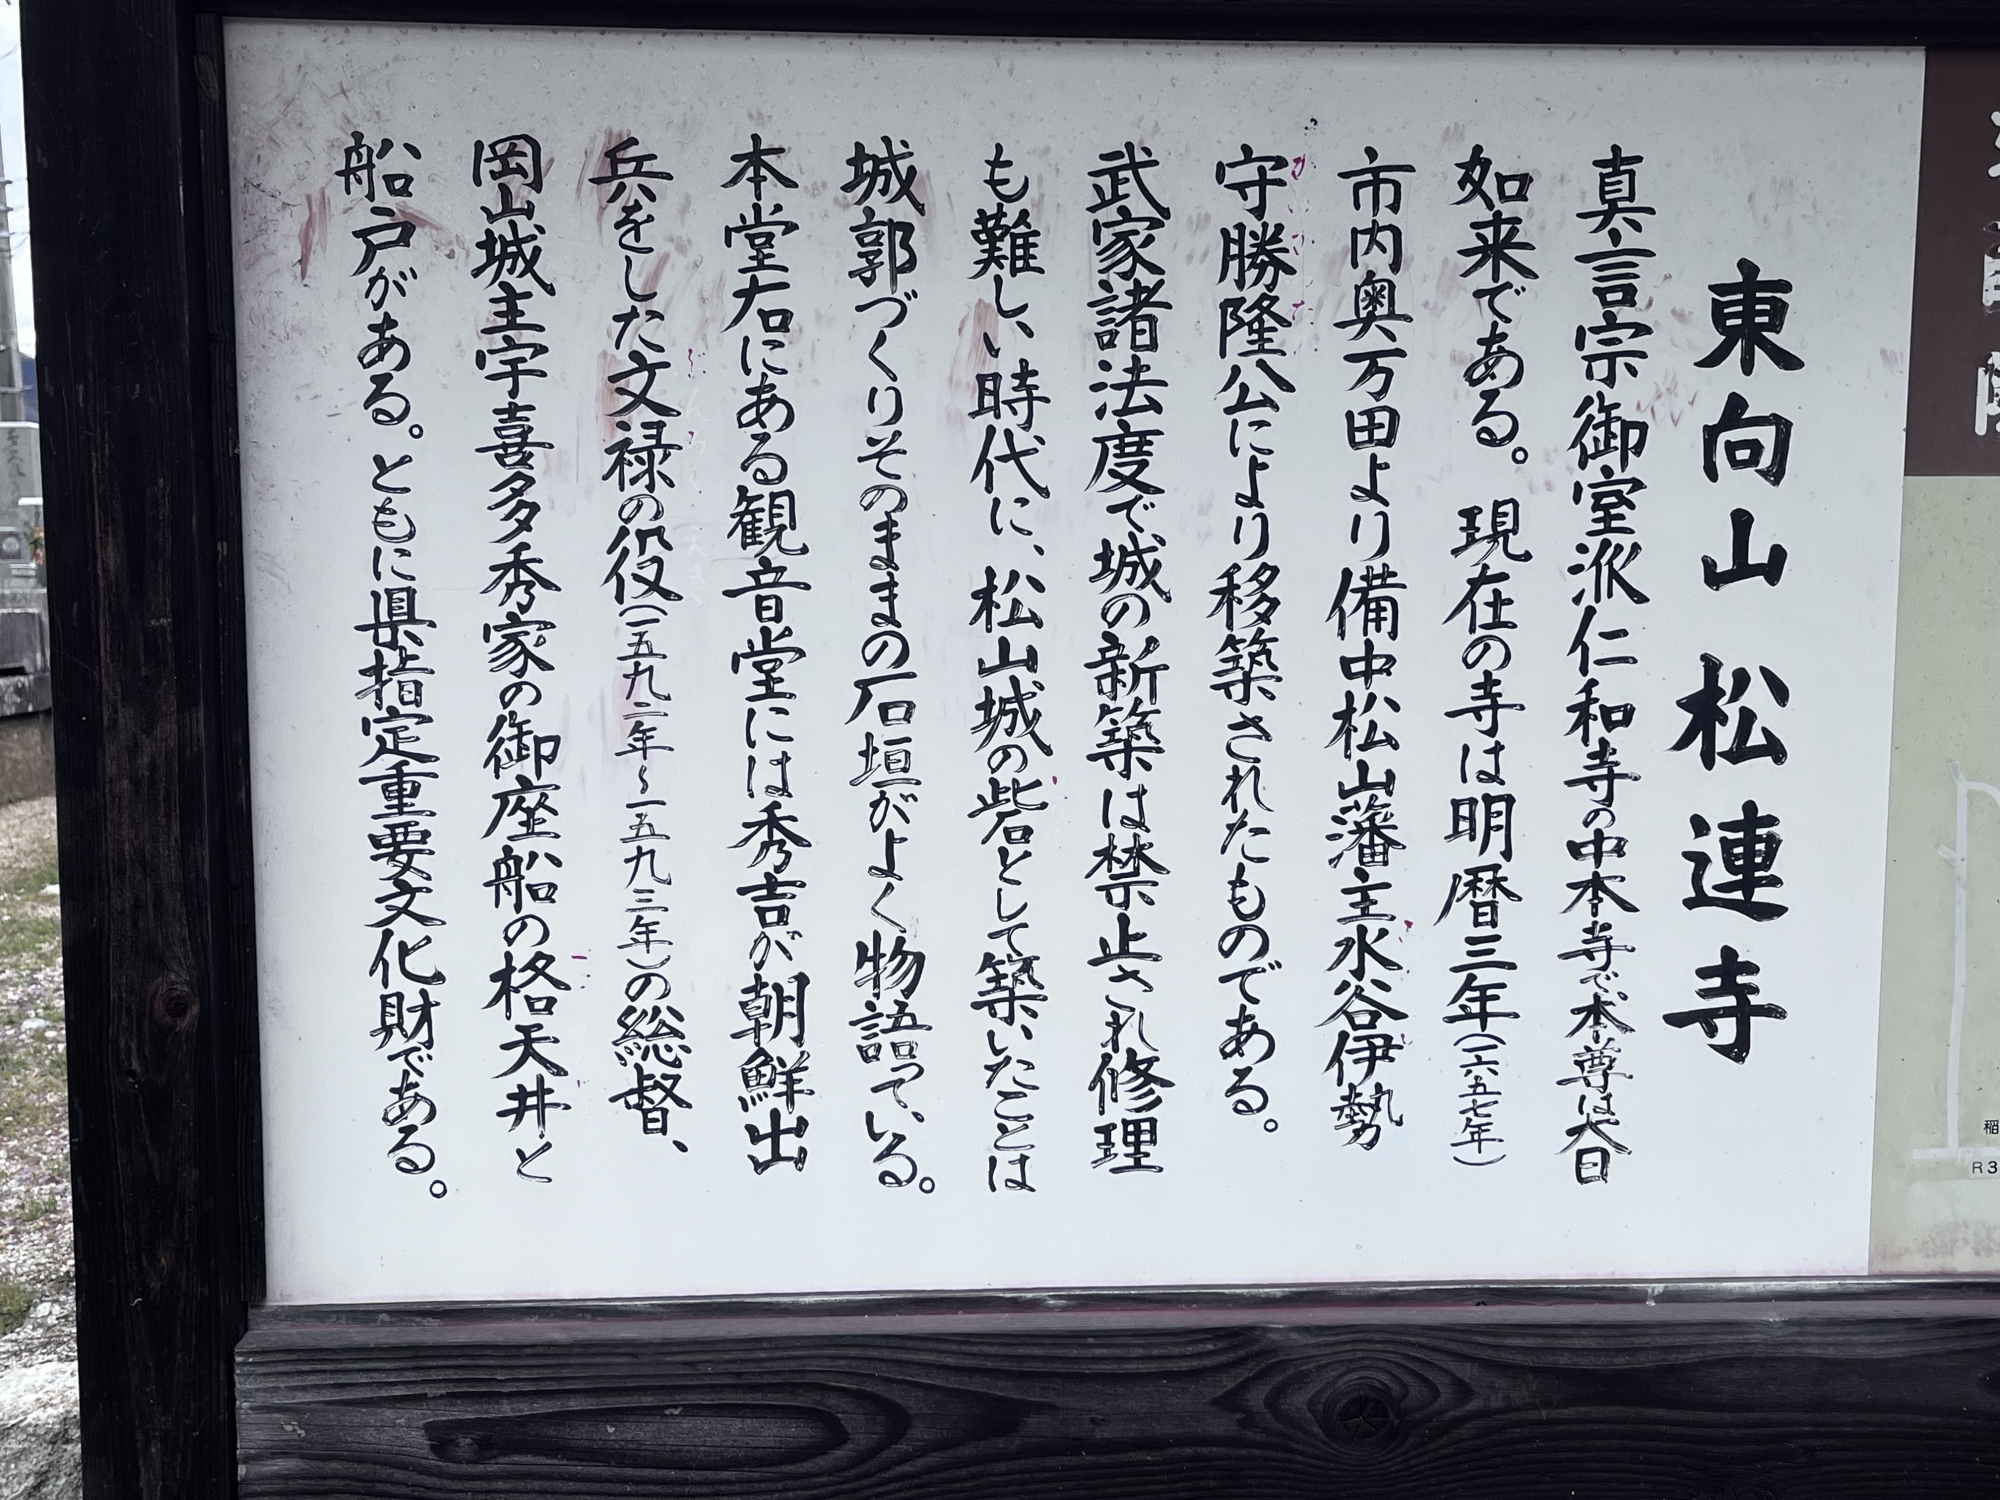 東向山 松連寺
真言宗御室派仁和寺の中本寺で本尊は大日
如来である。現在の寺は明暦三年(一六五七年)
市内奥万田より備中松山藩主水谷伊勢
守勝隆公により移築されたものである。
武家諸法度で城の新築は禁止され修理
も難しい時代に、松山城の砦として築いたことは
城郭づくりそのままの石垣がよく物語っている。
本堂右にある観音堂には秀吉が朝鮮出
兵をした文禄の役(一五九二年~一五九三年)の総督、
岡山城主宇喜多秀家の御座船の格天井と
船戸がある。ともに県指定重要文化財である。
稲
R3